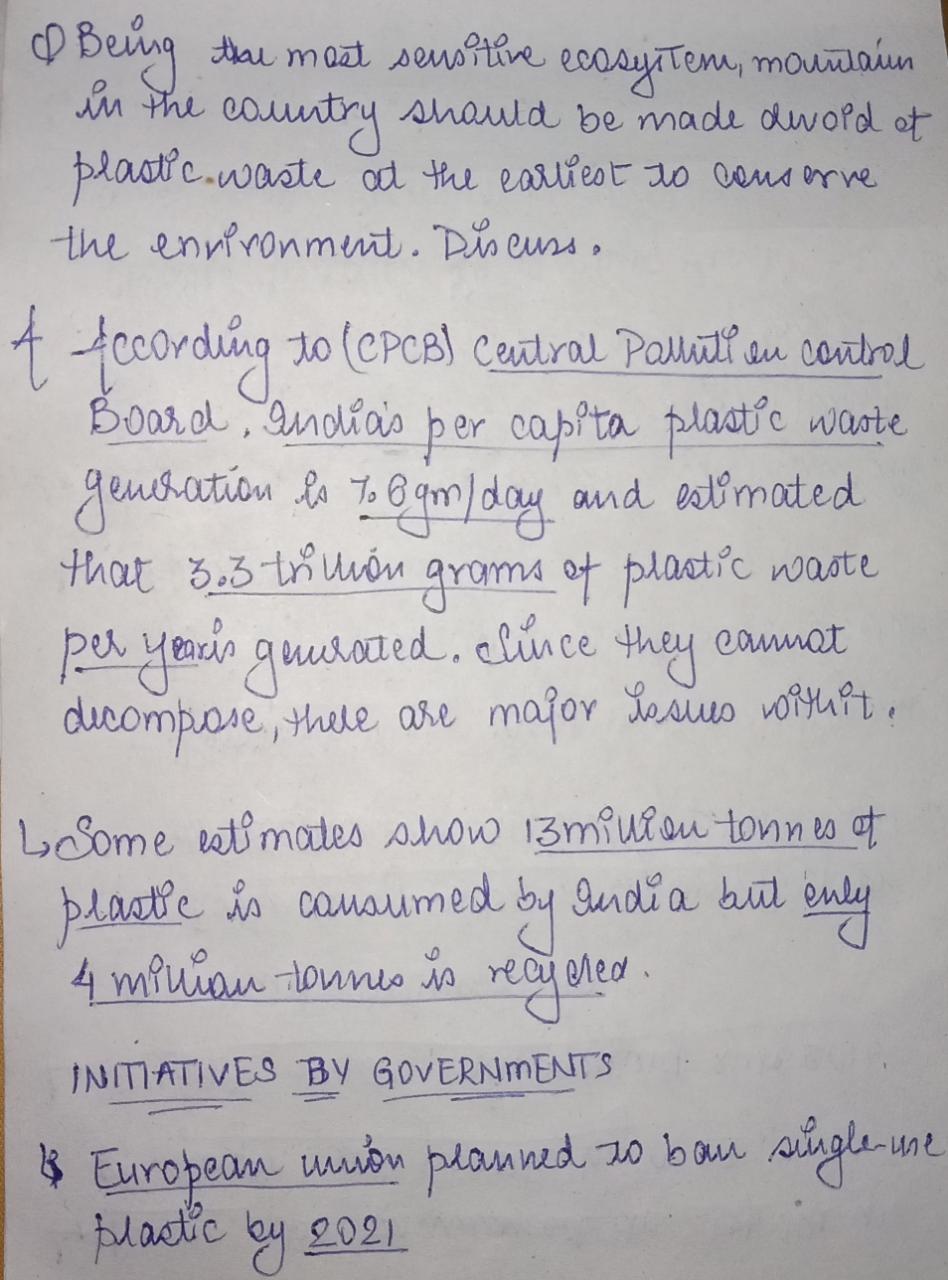 Q Being the most sensitive ecosystem, mountain
in the country should be made devoid of
plastic waste at the earliest to conserve
the environment. Discuss.
A According to (CPCB) Central Pollution control
Board, India's per capita plastic waste
generation is 7.6gm/day and estimated
that 3.3 trillion grams of plastic waste
per year is generated. Since they cannot
decompose, there are major issues with it.
↳ Some estimates show 13 million tonnes of
plastic is consumed by India but only
4 million tonnes is recycled.
INITIATIVES BY GOVERNMENTS
↳ European union planned to ban single-use
plastic by 2021